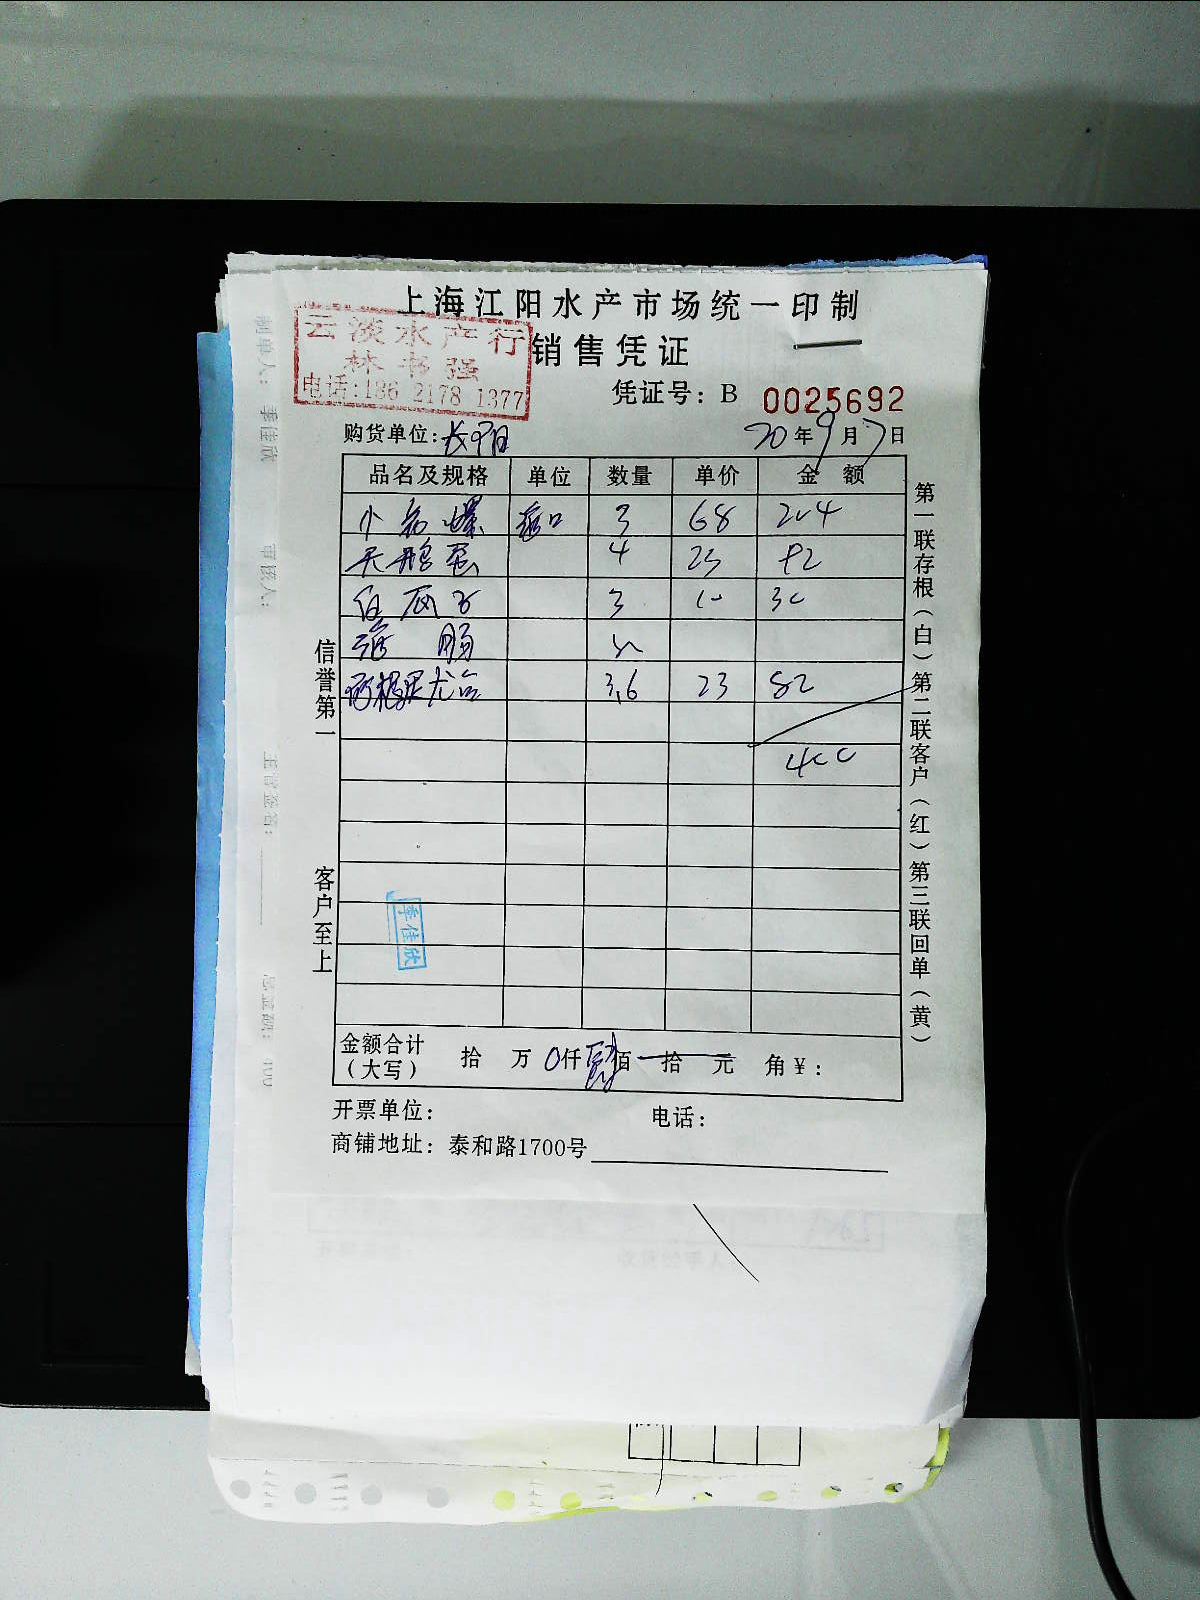 上海江阳水产市场统一印制
销售凭证
云淡水产行
林书强
电话:186 2178 1377
凭证号：B 0025692
购货单位：长阳
20年9月7日
品名及规格 单位 数量 单价 金额
小 螺 3 68 204
天鹅蛋 4 23 92
白瓜子 3 10 30
肠
3.6 23 82
400
信誉第一
客户至上
第一联存根（白）第二联客户（红）第三联回单（黄）
季佳欣
金额合计（大写） 拾 万 0仟 肆佰 拾 元 角¥：
开票单位： 电话：
商铺地址：泰和路1700号
制单人：季佳欣
审核人：